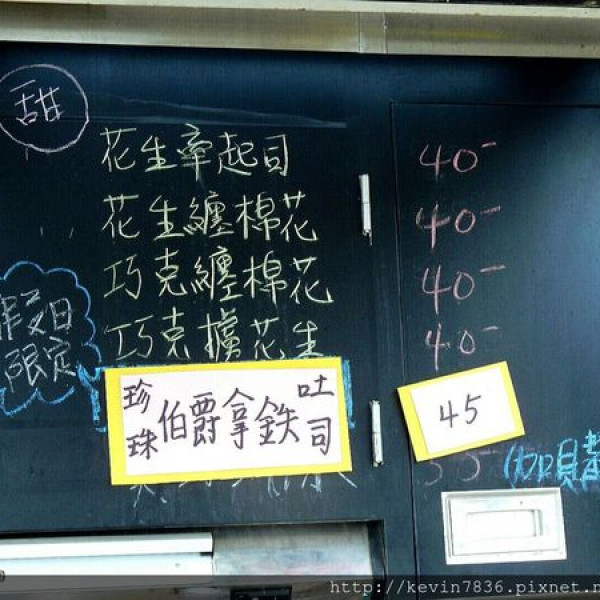 甜
花生牽起司 40-
花生纏棉花 40-
巧克纏棉花 40-
巧克擄花生 40-
假日
限定
珍珠伯爵拿鉄吐司 45
http://kevin7836.pixnet.n